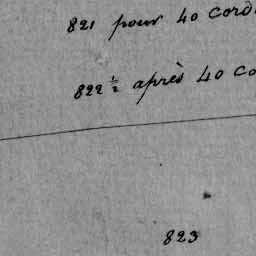 821 pour 40 cord
822 1/2 après 40 co
823